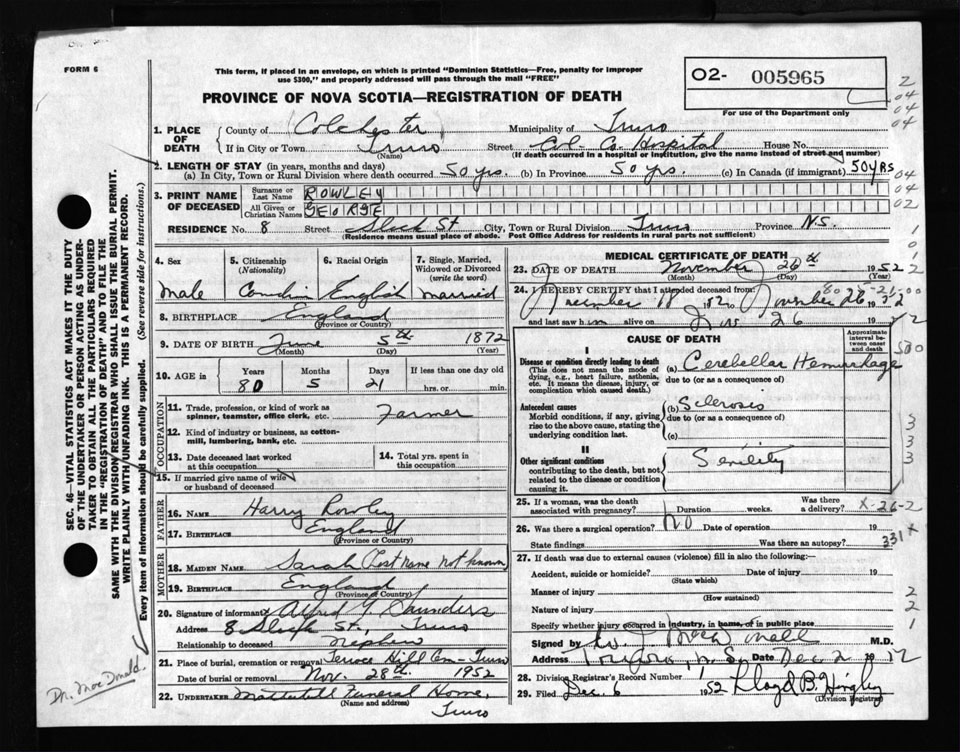 FORM 6
This form, if placed in an envelope, on which is printed "Dominion Statistics—Free, penalty for improper
use $300," and properly addressed will pass through the mail "FREE"
O2- 005965
PROVINCE OF NOVA SCOTIA—REGISTRATION OF DEATH
For use of the Department only
2
04
04
04
1. PLACE OF DEATH
County of Colchester Municipality of Truro
If in City or Town Truro Street Col. Co. Hospital House No.
(Name) (If death occurred in a hospital or institution, give the name instead of street and number)
2. LENGTH OF STAY (in years, months and days)
(a) In City, Town or Rural Division where death occurred 50 yrs. (b) In Province 50 yrs. (c) In Canada (if immigrant) 50 YRS
04
3. PRINT NAME OF DECEASED
Surname or Last Name ROWLEY
04
All Given or Christian Names GEORGE
02
RESIDENCE No. 8 Street St City, Town or Rural Division Truro Province N.S.
(Residence means usual place of abode. Post Office Address for residents in rural parts not sufficient)
4. Sex
Male
5. Citizenship
(Nationality)
6. Racial Origin
English
7. Single, Married,
Widowed or Divorced
(write the word)
married
8. BIRTHPLACE England
(Province or Country)
9. DATE OF BIRTH June 5th 1872
(Month) (Day) (Year)
10. AGE in Years Months Days If less than one day old
80 5 21 hrs. or min.
OCCUPATION
11. Trade, profession, or kind of work as
spinner, teamster, office clerk, etc. Farmer
12. Kind of industry or business, as cotton-
mill, lumbering, bank, etc.
13. Date deceased last worked
at this occupation
14. Total yrs. spent in
this occupation
15. If married give name of wife
or husband of deceased
FATHER
16. NAME Harry Rowley
17. BIRTHPLACE England
(Province or Country)
MOTHER
18. MAIDEN NAME Sarah (Last name not known)
19. BIRTHPLACE England
(Province or Country)
20. Signature of informant Alfred Saunders
Address 8 St., Truro
Relationship to deceased Nephew
21. Place of burial, cremation or removal Hill Cem - Truro
Date of burial or removal Nov. 28th 1952
22. UNDERTAKER Funeral Home,
(Name and address)
Truro
MEDICAL CERTIFICATE OF DEATH
23. DATE OF DEATH November 26th 1952
(Month) (Day) (Year)
24. I HEREBY CERTIFY that I attended deceased from:
November 18 52 to November 26 1952
and last saw him alive on Nov 26
CAUSE OF DEATH
Approximate
interval be-
tween onset
and death
I
Disease or condition directly leading to death
(This does not mean the mode of
dying, e.g., heart failure, asthenia,
etc. It means the disease, injury, or
complication which caused death.)
(a) Cerebellar Hemorrhage
due to (or as a consequence of)
Antecedent causes
Morbid conditions, if any, giving
rise to the above cause, stating the
underlying condition last.
(b) Sclerosis
due to (or as a consequence of)
(c)
II
Other significant conditions
contributing to the death, but not
related to the disease or condition
causing it.
Senility
25. If a woman, was the death
associated with pregnancy? Duration weeks. Was there
a delivery?
X-26-2
26. Was there a surgical operation? NO Date of operation 19
State findings Was there an autopsy?
331 x
27. If death was due to external causes (violence) fill in also the following:—
Accident, suicide or homicide? Date of injury 19
(State which)
Manner of injury
(How sustained)
Nature of injury
Specify whether injury occurred in industry, in home, or in public place
Signed by M.D.
Address Truro, N.S. Date Dec 2 1952
28. Division Registrar's Record Number
29. Filed Dec. 6 1952 Lloyd B.
(Division Registrar)
SEC. 46—VITAL STATISTICS ACT MAKES IT THE DUTY
OF THE UNDERTAKER OR PERSON ACTING AS UNDER-
TAKER TO OBTAIN ALL THE PARTICULARS REQUIRED
IN THE "REGISTRATION OF DEATH" AND TO FILE THE
SAME WITH THE DIVISION REGISTRAR WHO SHALL ISSUE THE BURIAL PERMIT.
WRITE PLAINLY WITH UNFADING INK. THIS IS A PERMANENT RECORD.
Every item of information should be carefully supplied. (See reverse side for instructions.)
Dr. MacDonald.